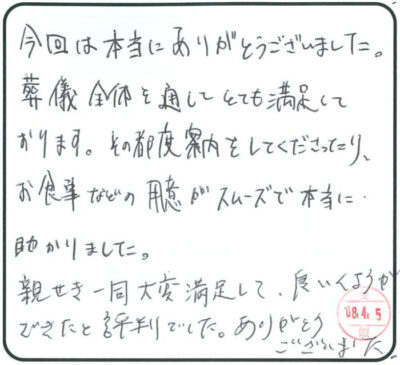 今回は本当にありがとうございました。
葬儀全体を通してとても満足して
おります。その都度案内をしてくださったり、
お食事などの用意がスムーズで本当に
助かりました。
親せき一同大変満足して、良いくようが
できたと評判でした。ありがとう
ございました
08.4.5